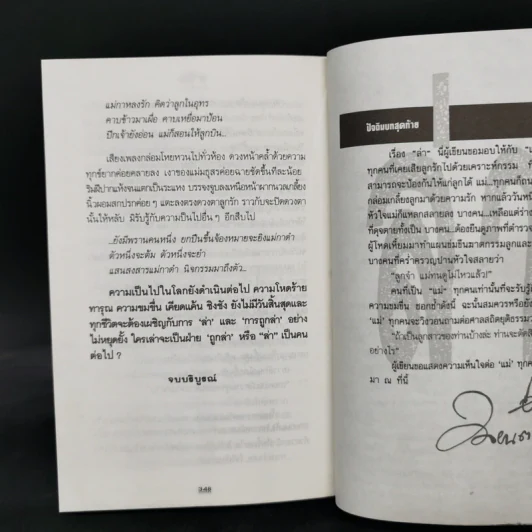 แม่กาหลงรัก คิดว่าลูกในอุทร
คาบข้าวมาเผื่อ คาบเหยื่อมาป้อน
ปีกเจ้ายังอ่อน แม่ก็สอนให้ลูกบิน...
เสียงเพลงกล่อมโหยหวนไปทั่วท้อง ดวงหน้าคล้ำด้วยความ
ทุกข์ยากค่อยคลายลง เงาของแม่มธุสรค่อยฉายชัดขึ้นทีละน้อย
ริมฝีปากแห้งจนแตกเป็นระแหง บรรจงจูบลงเหนือหน้าผากนวลเกลี้ยง
นิ้วผอมสกปรกค่อย ๆ แตะลงตรงดวงตาลูกรัก ราวกับจะปิดดวงตา
นั้นให้หลับ มิรับรู้กับความเป็นไปอื่น ๆ อีกสืบไป
...ยังมีพรานคนหนึ่ง ยกปืนขึ้นจ้องหมายจะยิงแม่กาดำ
ตัวหนึ่งจะต้ม ตัวหนึ่งจะยำ
แสนสงสารแม่กาดำ นิจกรรมมาถึงตัว...
ความเป็นไปในโลกยังดำเนินต่อไป ความโหดร้าย
ทารุณ ความขมขื่น เคียดแค้น ชิงชัง ยังไม่มีวันสิ้นสุดและ
ทุกชีวิตจะต้องเผชิญกับการ ‘ล่า’ และ ‘การถูกล่า’ อย่าง
ไม่หยุดยั้ง ใครเล่าจะเป็นฝ่าย ‘ถูกล่า’ หรือ “ล่า” เป็นคน
ต่อไป ?
จบบริบูรณ์
348
ปัจฉิมบทสุดท้าย
เรื่อง “ล่า” นี้ผู้เขียนขอมอบให้กับ
ทุกคนที่เคยเสียลูกรักไปด้วยเคราะห์กรรม
สามารถจะป้องกันให้แก่ลูกได้ แม่...ทุกคนก็
กล่อมเกลี้ยงลูกมาด้วยความรัก หากแล้ววัน
หัวใจแม่ก็แหลกสลายลง บางคน...เหลือแต่ร่าง
ที่ดุจตายทั้งเป็น บางคน...ต้องยืนดูภาพที่ตำรวจ
ผู้โหดเหี้ยมมาทำแผนข่มขืนฆาตกรรมลูกและ
บางคนที่คร่ำครวญปานหัวใจสลายว่า
“ลูกจ๋า แม่ทนดูไม่ไหวแล้ว!”
คนที่เป็น “แม่” ทุกคนเท่านั้นที่จะรับรู้
ความขมขื่น ชอกช้ำดังนี้ ฉะนั้นสมควรหรือยัง
‘แม่’ ทุกคนจะวิงวอนถามต่อศาลสถิตยุติธรรม
“ถ้าเป็นลูกสาวของท่านบ้างล่ะ ท่านจะตัดสิ
อย่างไร”
ผู้เขียนขอแสดงความเห็นใจต่อ ‘แม่’ ทุก
มา ณ ที่นี้